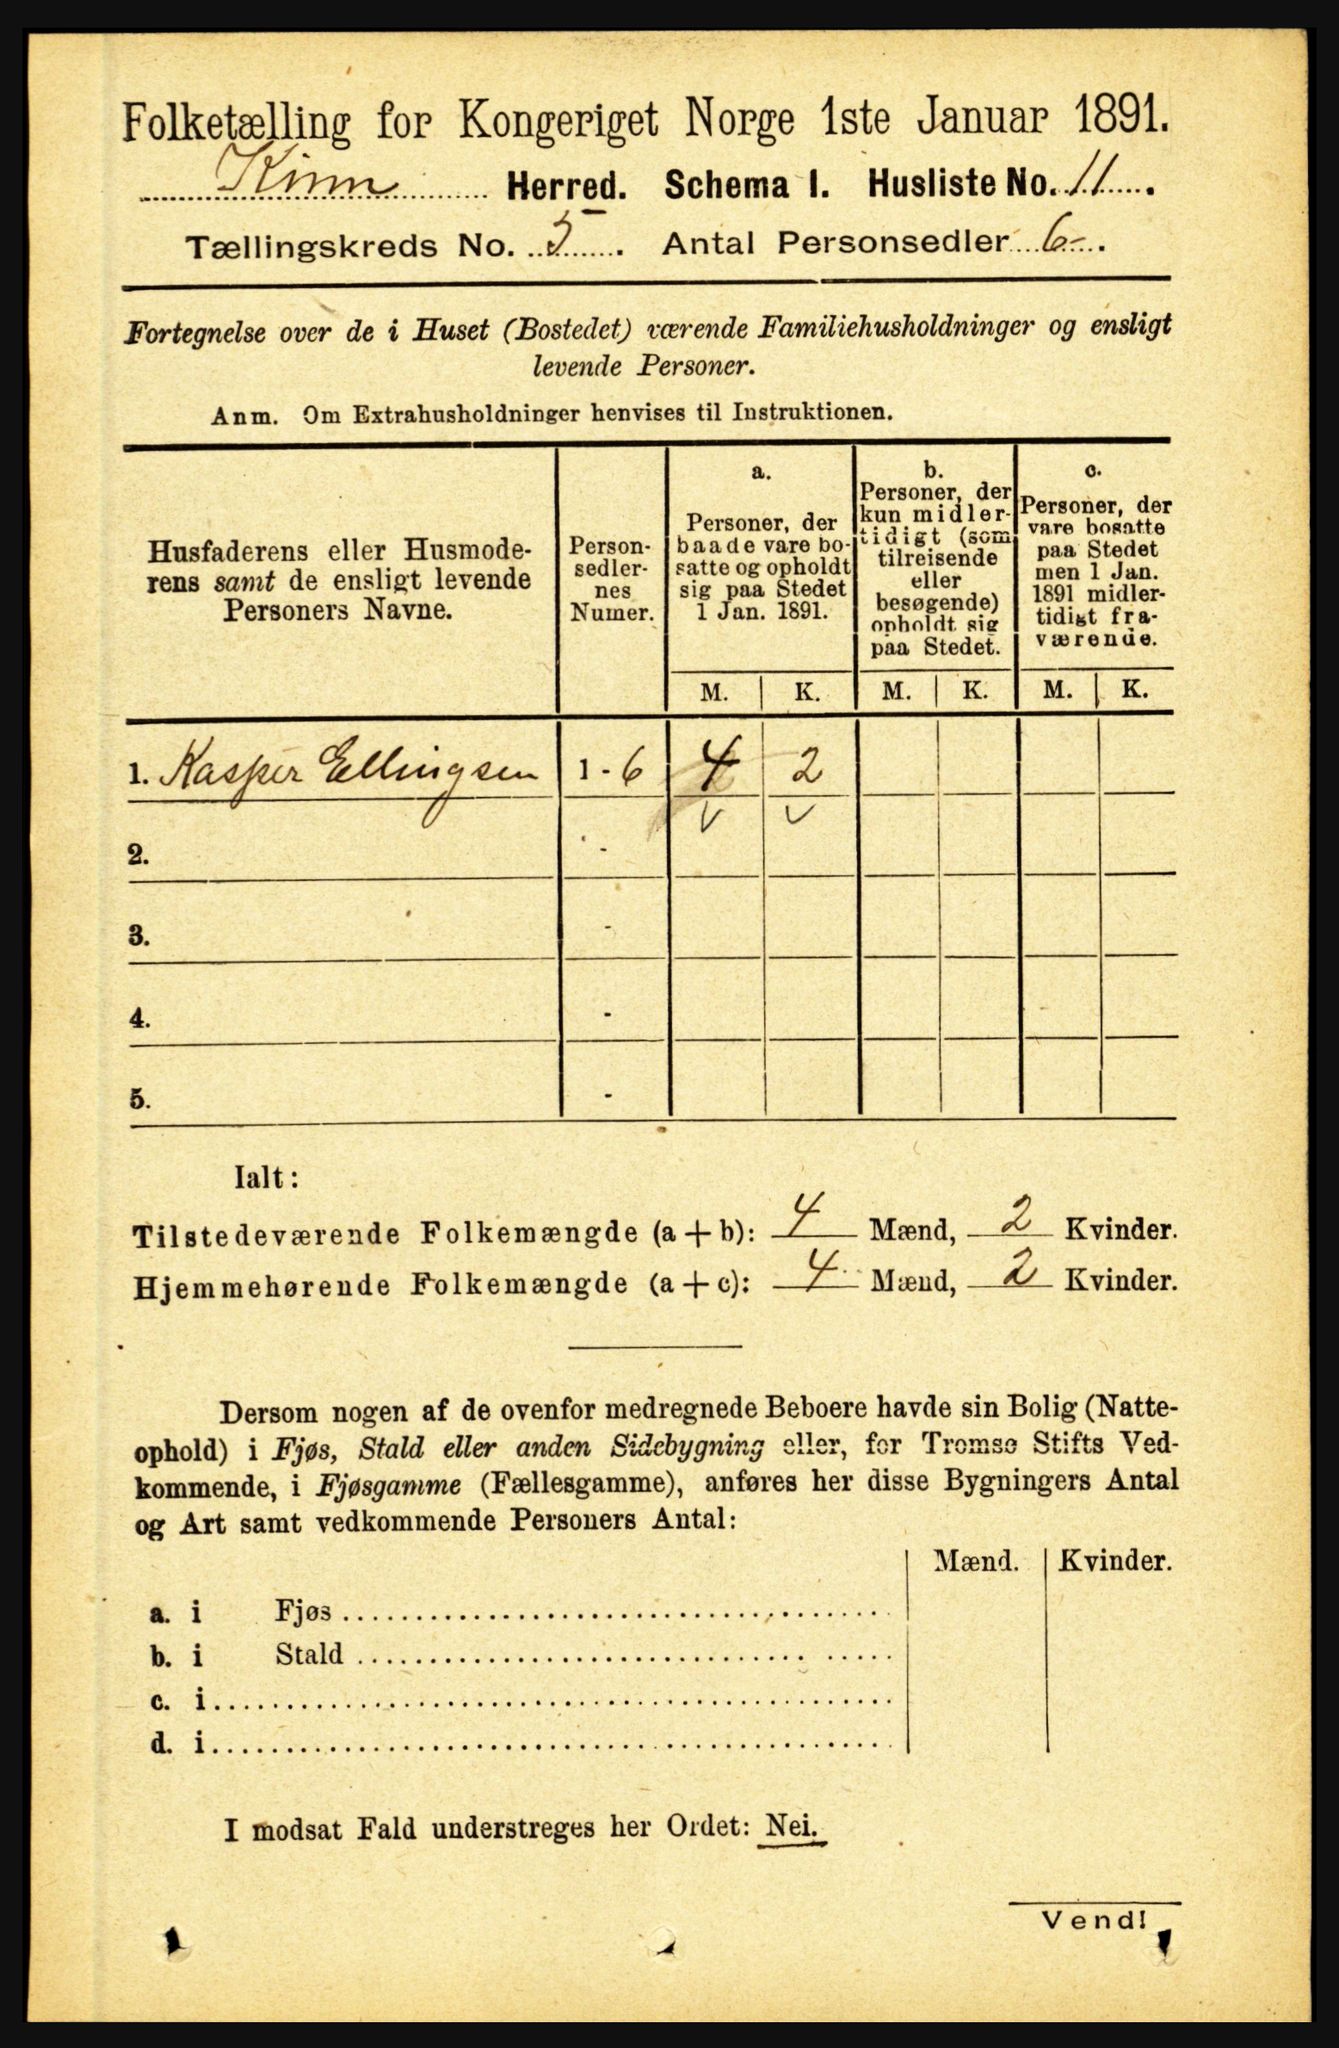 Folketælling for Kongeriget Norge 1ste Januar 1891.
Kinn Herred. Schema I. Husliste No. 11.
Tællingskreds No. 5. Antal Personsedler 6.
Fortegnelse over de i Huset (Bostedet) værende Familiehusholdninger og ensligt
levende Personer.
Anm. Om Extrahusholdninger henvises til Instruktionen.
Husfaderens eller Husmode-
rens samt de ensligt levende
Personers Navne.
Person-
sedler-
nes
Numer.
a.
Personer, der
baade vare bo-
satte og opholdt
sig paa Stedet
1 Jan. 1891.
b.
Personer, der
kun midler-
tidigt (som
tilreisende
eller
besøgende)
opholdt sig
paa Stedet.
c.
Personer, der
vare bosatte
paa Stedet
men 1 Jan.
1891 midler-
tidigt fra-
værende.
M. K. M. K. M. K.
1. Kasper Ellingsen 1-6 4 2
2. -
3. -
4. -
5. -
Ialt:
Tilstedeværende Folkemængde (a + b): 4 Mænd, 2 Kvinder.
Hjemmehørende Folkemængde (a + c): 4 Mænd, 2 Kvinder.
Dersom nogen af de ovenfor medregnede Beboere havde sin Bolig (Natte-
ophold) i Fjøs, Stald eller anden Sidebygning eller, for Tromsø Stifts Ved-
kommende, i Fjøsgamme (Fællesgamme), anføres her disse Bygningers Antal
og Art samt vedkommende Personers Antal:
Mænd. Kvinder.
a. i Fjøs
b. i Stald
c. i
d. i
I modsat Fald understreges her Ordet: Nei.
Vend!